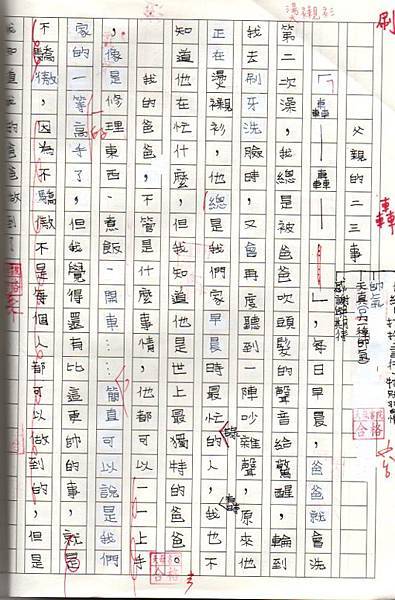 刷
轟
感謝與期待
燙襯衫
父親的二三事
「轟——轟——」，每日早晨，爸爸就會洗
第二次澡，我總是被爸爸吹頭髮的聲音給驚醒，輪到
我去刷牙洗臉時，又會再度聽到一陣吵雜聲，原來他
正在燙襯衫，總是我們家早晨時最忙的人，我也不
知道他在忙什麼，但我知道他是世上最獨特的爸爸。
我的爸爸，不管是什麼事情，他都可以一一上手
，像是修理東西、煮飯、開車…簡直可以說是我們
家的一等高手了，但我覺得還有比這更帥的事，就是
不驕傲，因為不驕傲不是每個人都可以做到的，但是
合格
合格